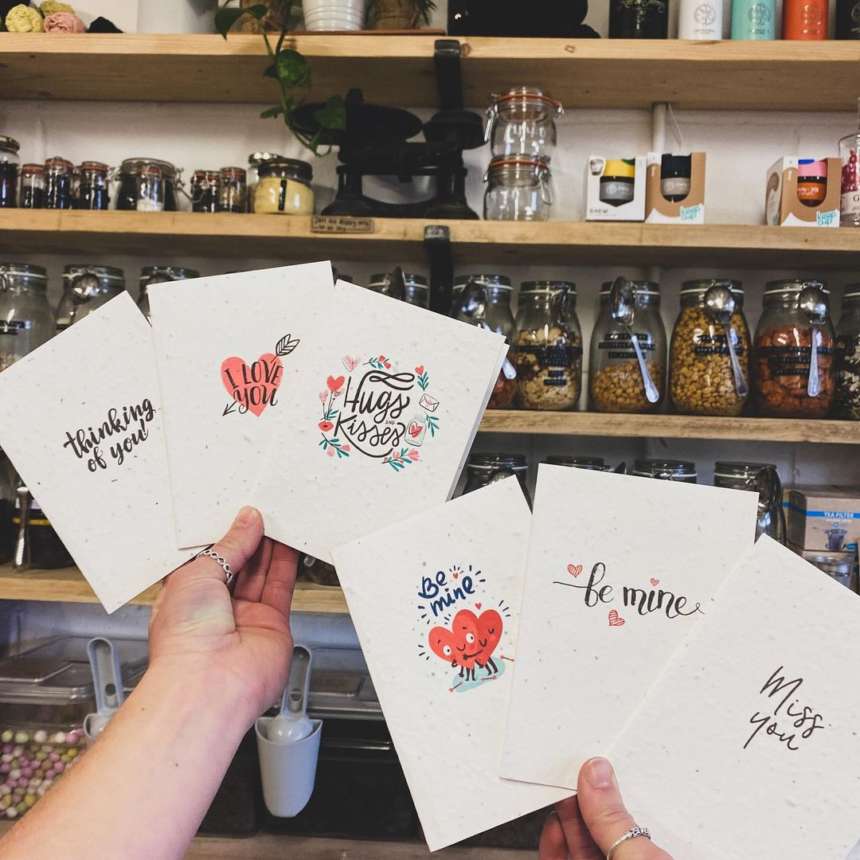 thinking
of you
I LOVE
YOU
Hugs
AND
Kisses
Be
mine
be mine
Miss
you
TEA FILTER